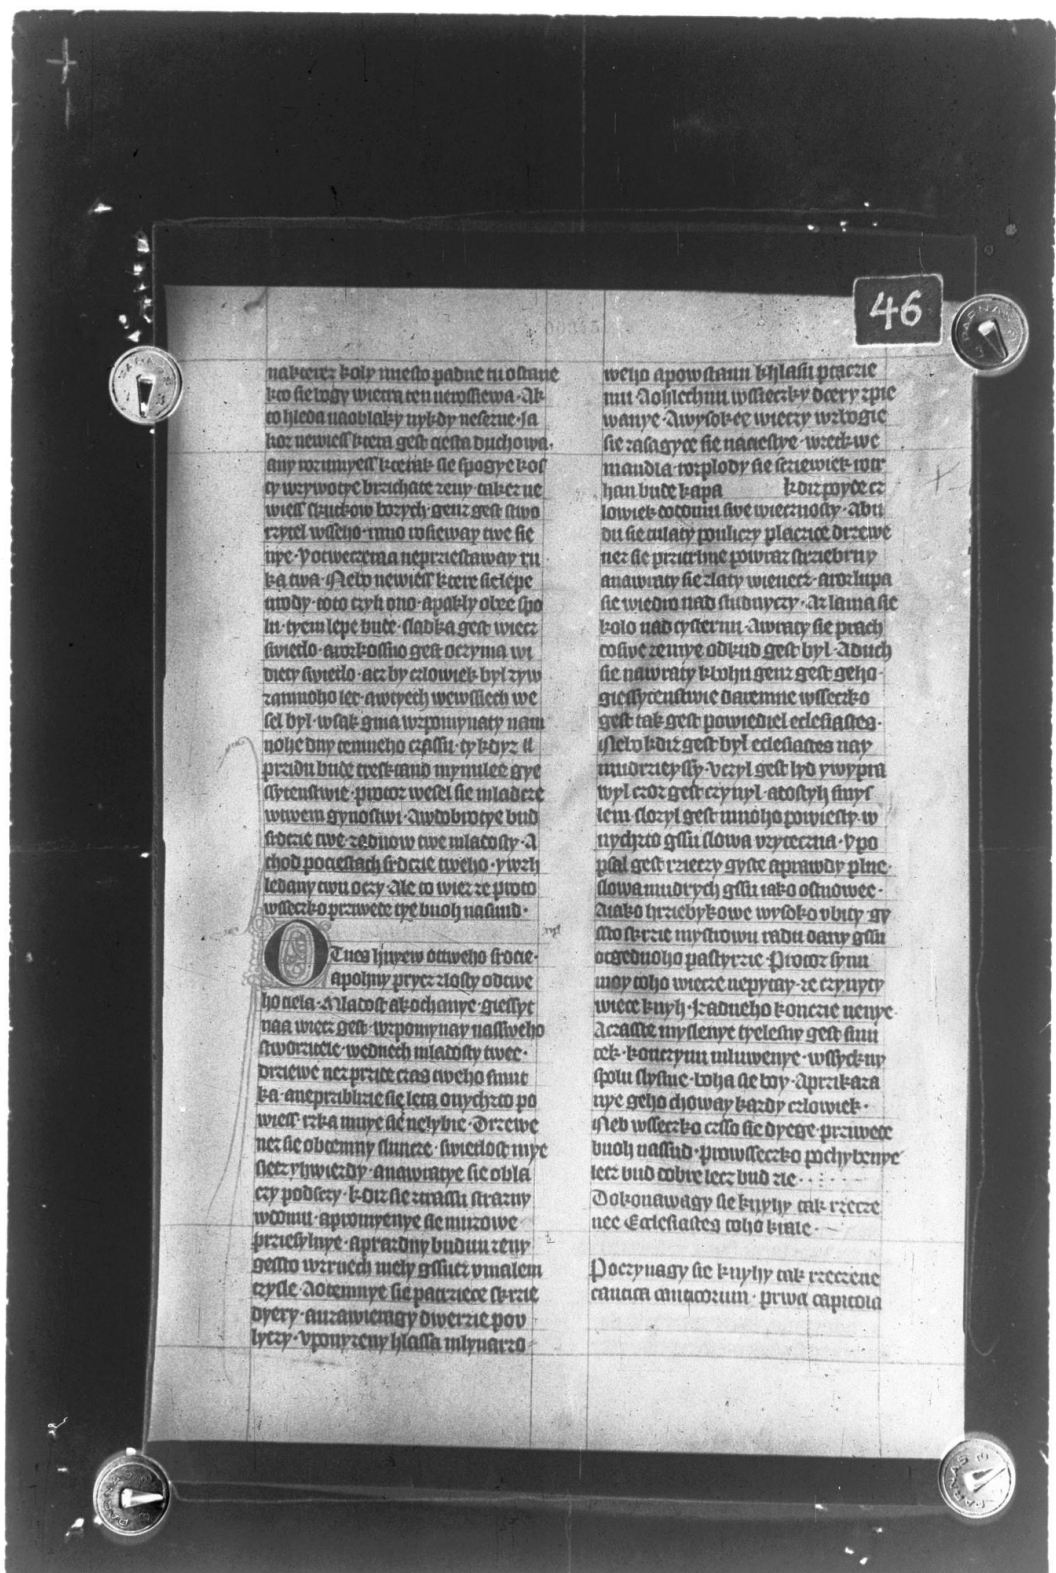 46
nakterez koly miesto padne tu ostane
kto sie bogy wietra ten newssiewa · Ak
to hleda na oblaky nykdy nesezne · Ja
koz newiess ktera gest cesta duchowa ·
any rozumyess kterak sie spogye kos
ty wzywotye brzichate zeny · takez ne
wiess skutkow bozych · genz gest stwo
rzytel wsseho · rano rosieway twe sie
nye · Y otweczera neprziestaway ru
ka twa · Nebo newiess ktere sie lepe
urody · toto czyli ono · apakly obee spo
lu · tyem lepe bude · sladka gest wiecz
swietlo · arozkossno gest oczyma wi
diety swietlo · acz by czlowiek byl zyw
zamnoho let · awtyech wewssiech we
sel byl · wsak gma wzpomynaty nam
nohe dny temneho czassu · ty kdyz
przidu bude trestano mynulee gye
ssytenstwie · protoz wesel sie mladcze
wtwem gynostwi · Awdobrotye bud
srdczie twe · zednow twe mladosty · A
chod pocestach srdczie tweho · ywzh
ledany twu oczy · Ale to wiez ze proto
wsseczko przwede tye buoh nasuud ·
OTwes hnyew ottweho srdcie ·
apohny prycz zlosty odtwe
ho tiela · Mladost akochanye · giessyt
naa wiecz gest · wzpomynay nasweho
stworzitele · wednech mladosty twee ·
drziewe nez przide czas tweho smut
ka · aneprziblizie sie leta onychzto po
wiess rzka mnye sie nelybie · Drzewe
nez sie obtemny slunce · swietlost mye
sieczyhwiezdy · anawratye sie obla
czy podsczy · kdiz sie zrassu strazny
wdomu · apromyenye sie muzowe
przesylnye · aprazdny budu zeny
gessto wzruech mely gssucz vmalem
czysle · Aotemnye sie patrziece skrzie
dyery · auzawieragy dwerzie pou
lyczy · vponyzeny hlassa mlynarzo
weho apowstanu khlasu ptaczie
mu · Aohlechnu wssieczky dcery zpie
wanye · Awysokee wieczy wzbogie
sie zasagyce sie nacestye · wzetkwe
mandla · rozplody sie scziewiek rozt
rhan bude kapa kdiz poyde cz
lowiek dodomu swe wiecznosty · Abu
du sie tulaty pouliczy placzice drzewe
nez sie przitrhne powraz strziebrny
anawraty sie zlaty wienecz · arozlupa
sie wiedro nad studnyczy · Azlama sie
kolo nad cysternu · Awraty sie prach
doswe zemye odkud gest byl · Aduch
sie nawraty kbohu genz gest geho ·
giessytenstwie daremne wsseczko
gest tak gest powiediel eclesiastes ·
Nebo kdiz gest byl eclesiastes nay
mudrzieyssy · vczyl gest lyd ywypra
wyl czoz gest czynyl · adostyh smys
lem slozyl gest mnoho powiesty · w
nychzto gssu slowa vzyteczna · Ypo
psal gest rzieczy gyste aprawdy plne ·
slowa mudrych gssu iako ostnowee ·
Aiako hrziebykowe wysoko vbity gy
sto skrzie mystrowu radu dany gssu
odgednoho pastyrzie · Protoz synu
moy toho wiecze nepytay · ze czynyty
wiece knyh · kzadneho koncze nenye
Aczasste myslenye tyelesny gest smu
tek · konczynu mluwenye · wssyckny
spolu slysme · boha sie boy · Aprzikaza
nye geho choway kazdy czlowiek ·
Neb wsseczko czsso sie dyege · przwede
buoh nassud · prowsseczko pochybenye
lecz bud dobre lecz bud zle · · · · ·
Dokonawagy sie knyhy tak rzecze
nee Ecclesiastes toho krale ·
Poczynagy sie knyhy tak rzeczene
cantica canticorum · prwa capitola